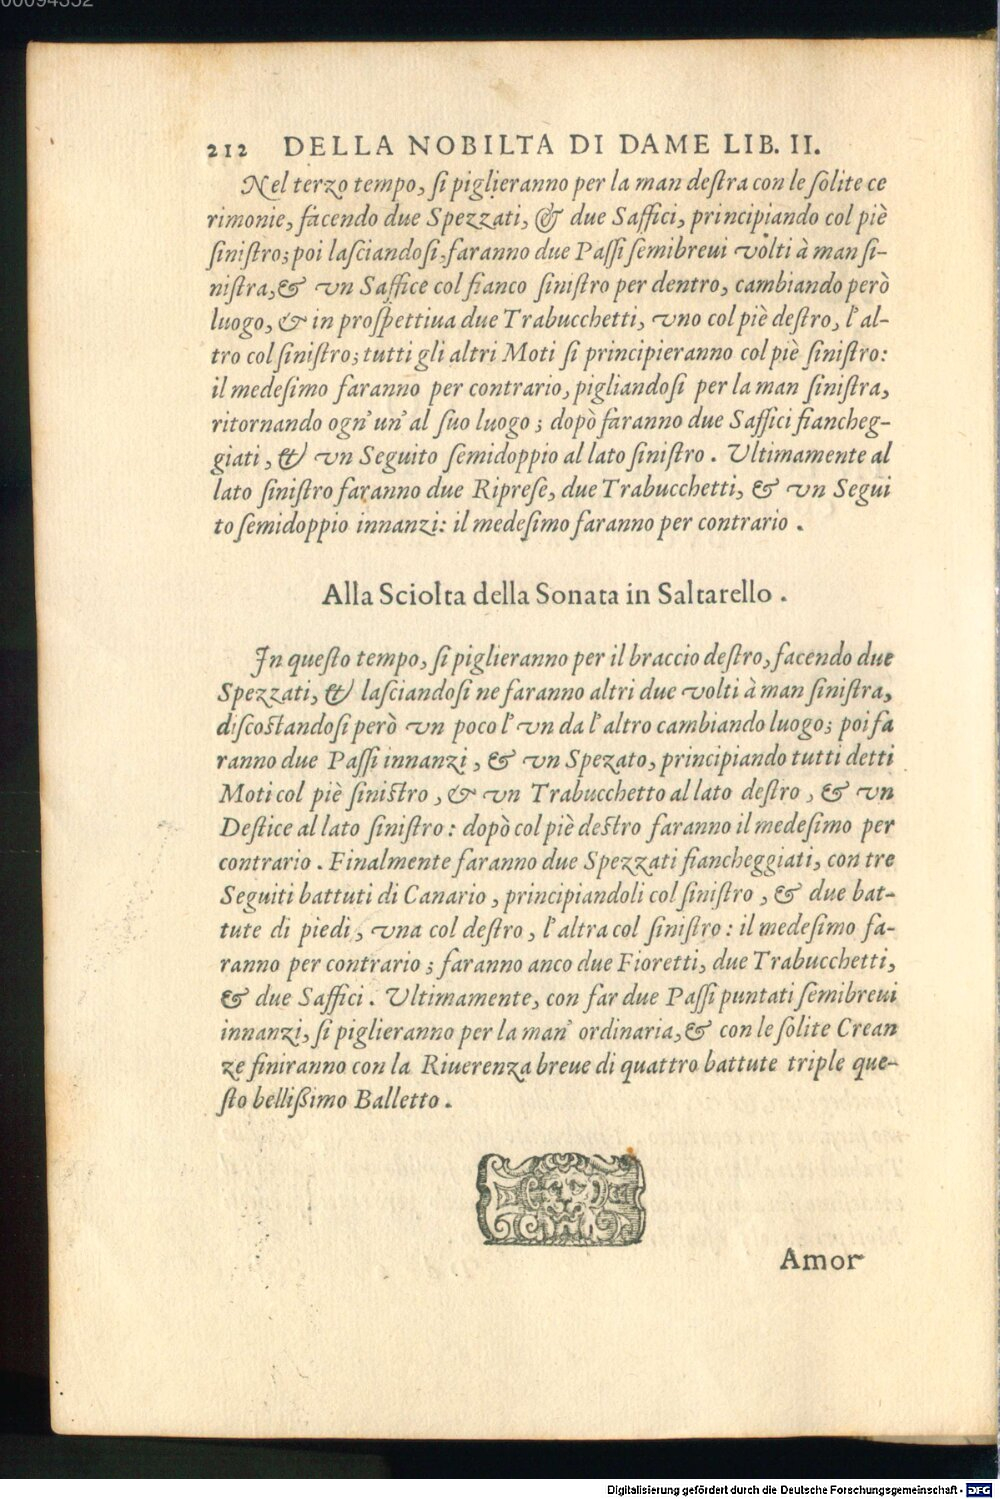 00094352
212 DELLA NOBILTA DI DAME LIB. II.
Nel terzo tempo, ſi piglieranno per la man deſtra con le ſolite ce
rimonie, facendo due Spezzati, & due Saffici, principiando col piè
ſiniſtro; poi laſciandoſi, faranno due Paſſi ſemibreui volti à man ſi-
niſtra, & vn Saffice col fianco ſiniſtro per dentro, cambiando però
luogo, & in proſpettiua due Trabucchetti, vno col piè deſtro, l'al-
tro col ſiniſtro; tutti gli altri Moti ſi principieranno col piè ſiniſtro:
il medeſimo faranno per contrario, pigliandoſi per la man ſiniſtra,
ritornando ogn'un' al ſuo luogo; dopò faranno due Saffici fiancheg-
giati, & vn Seguito ſemidoppio al lato ſiniſtro. Ultimamente al
lato ſiniſtro faranno due Ripreſe, due Trabucchetti, & vn Segui
to ſemidoppio innanzi: il medeſimo faranno per contrario.
Alla Sciolta della Sonata in Saltarello.
In queſto tempo, ſi piglieranno per il braccio deſtro, facendo due
Spezzati, & laſciandoſi ne faranno altri due volti à man ſiniſtra,
diſcoſtandoſi però vn poco l'vn da l'altro cambiando luogo; poi fa
ranno due Paſſi innanzi, & vn Spezato, principiando tutti detti
Moti col piè ſiniſtro, & vn Trabucchetto al lato deſtro, & vn
Deſtice al lato ſiniſtro: dopò col piè deſtro faranno il medeſimo per
contrario. Finalmente faranno due Spezzati fiancheggiati, con tre
Seguiti battuti di Canario, principiandoli col ſiniſtro, & due bat-
tute di piedi, vna col deſtro, l'altra col ſiniſtro: il medeſimo fa-
ranno per contrario; faranno anco due Fioretti, due Trabucchetti,
& due Saffici. Ultimamente, con far due Paſſi puntati ſemibreui
innanzi, ſi piglieranno per la man' ordinaria, & con le ſolite Crean
ze finiranno con la Riuerenza breue di quattro battute triple que-
ſto belliſsimo Balletto.
Amor
Digitalisierung gefördert durch die Deutsche Forschungsgemeinschaft - DFG